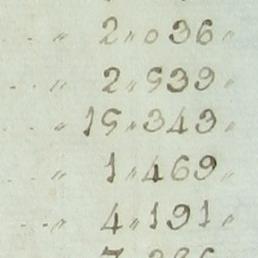 〃 2〃036〃
〃 2〃939〃
〃 19〃343〃
〃 1〃469〃
〃 4〃191〃